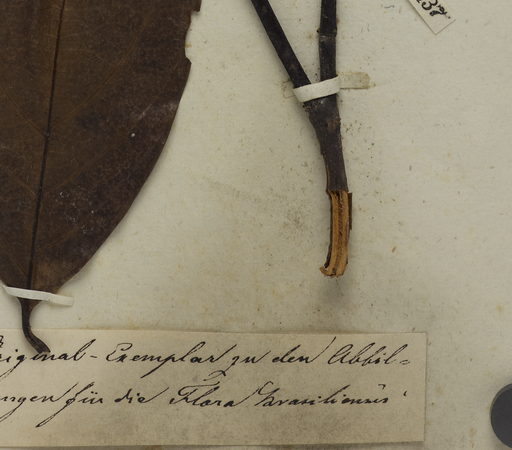 riginal-Exemplar zu den Abbil=
ngen für die Flora brasiliensis